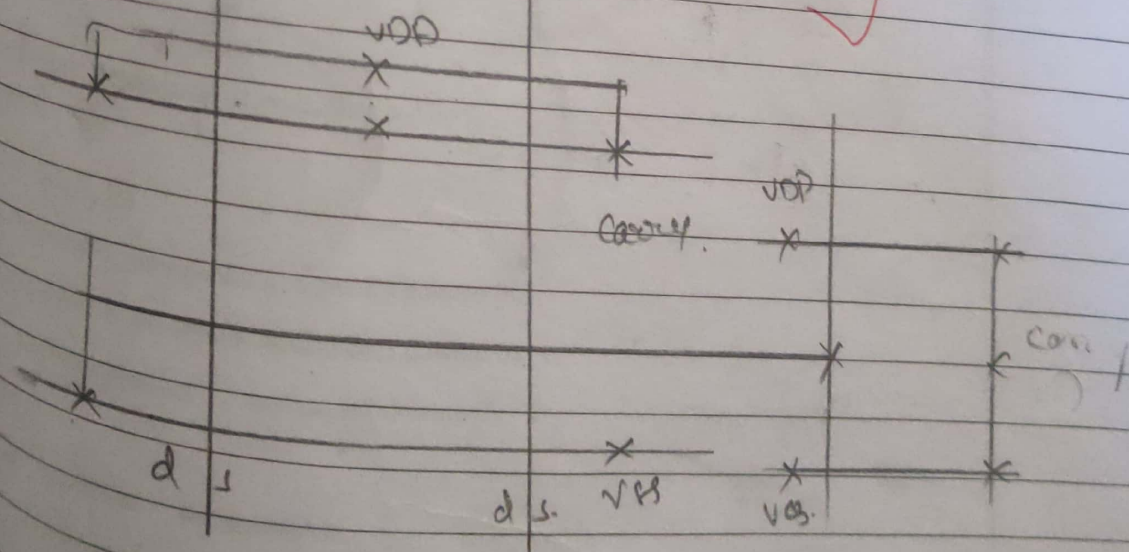 VDD
VDD
Carry.
d s
d s.
VSS
VSS.